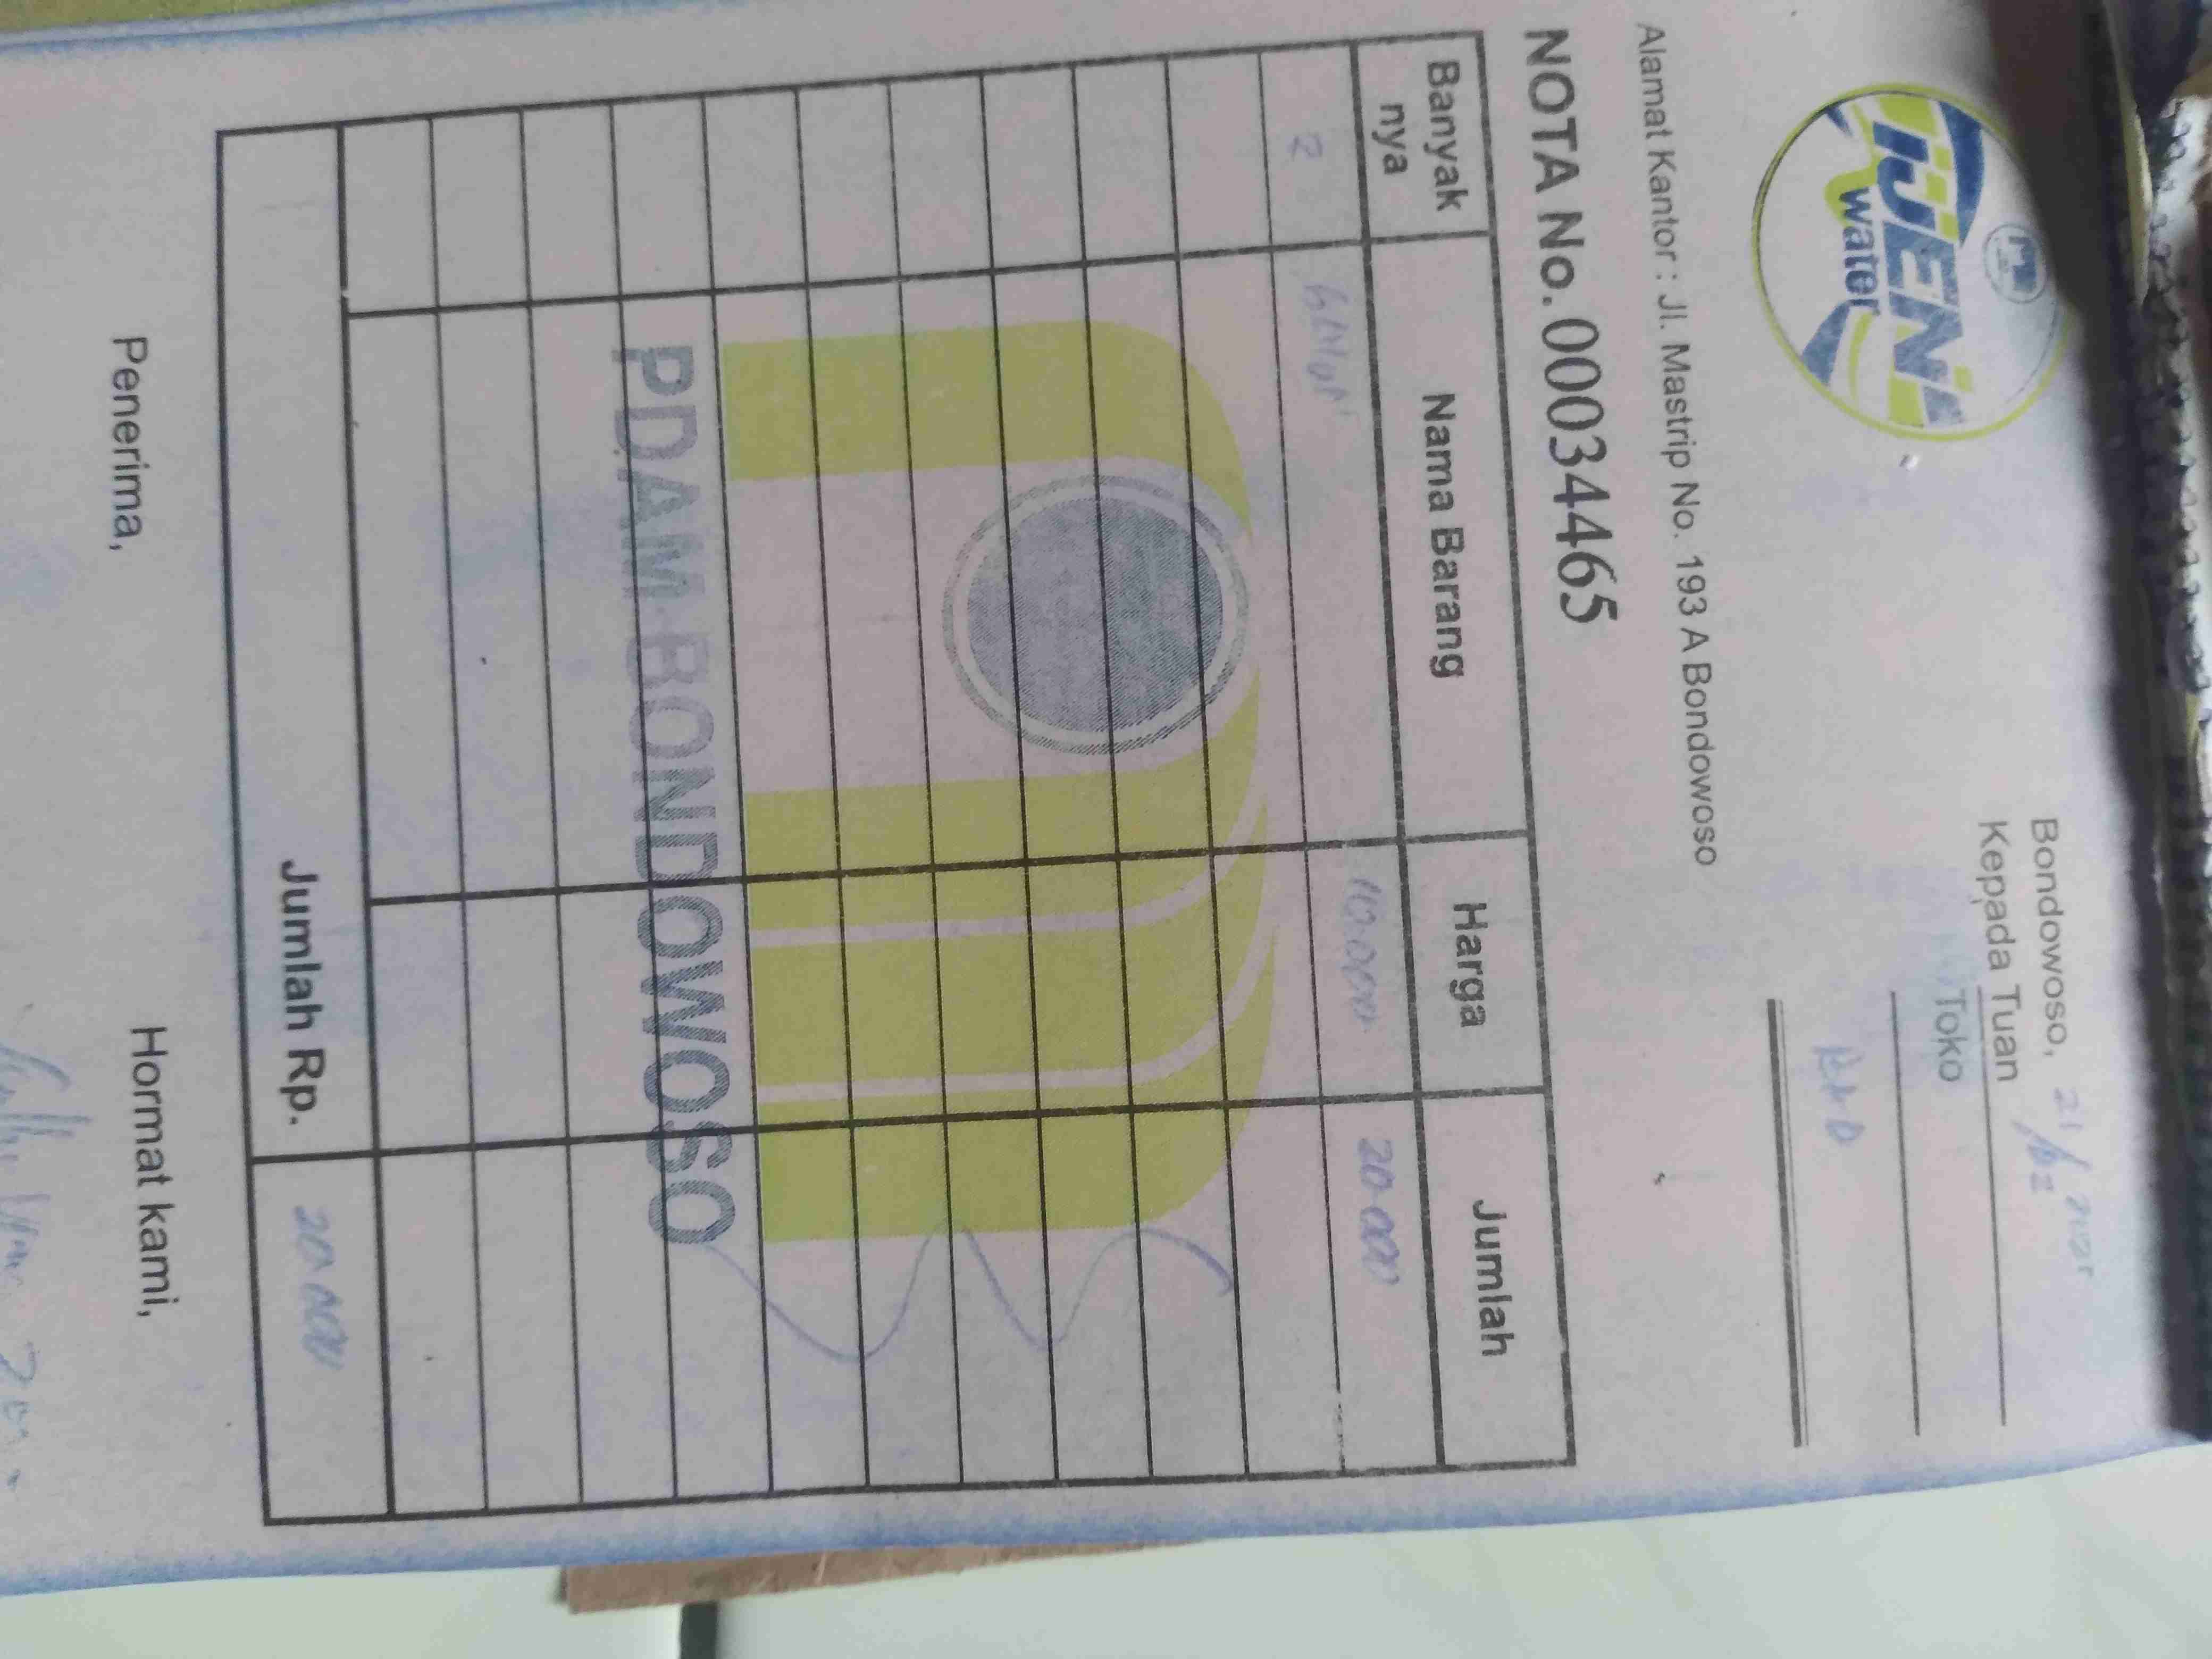 IJEN
water
Bondowoso, 21/02 2025
Kepada Tuan
Toko
Alamat Kantor : Jl. Mastrip No. 193 A Bondowoso
NOTA No. 00034465
Banyak nya Nama Barang Harga Jumlah
2 GALON 10.000 20.000
PDAM BONDOWOSO
Jumlah Rp. 20.000
Penerima, Hormat kami,